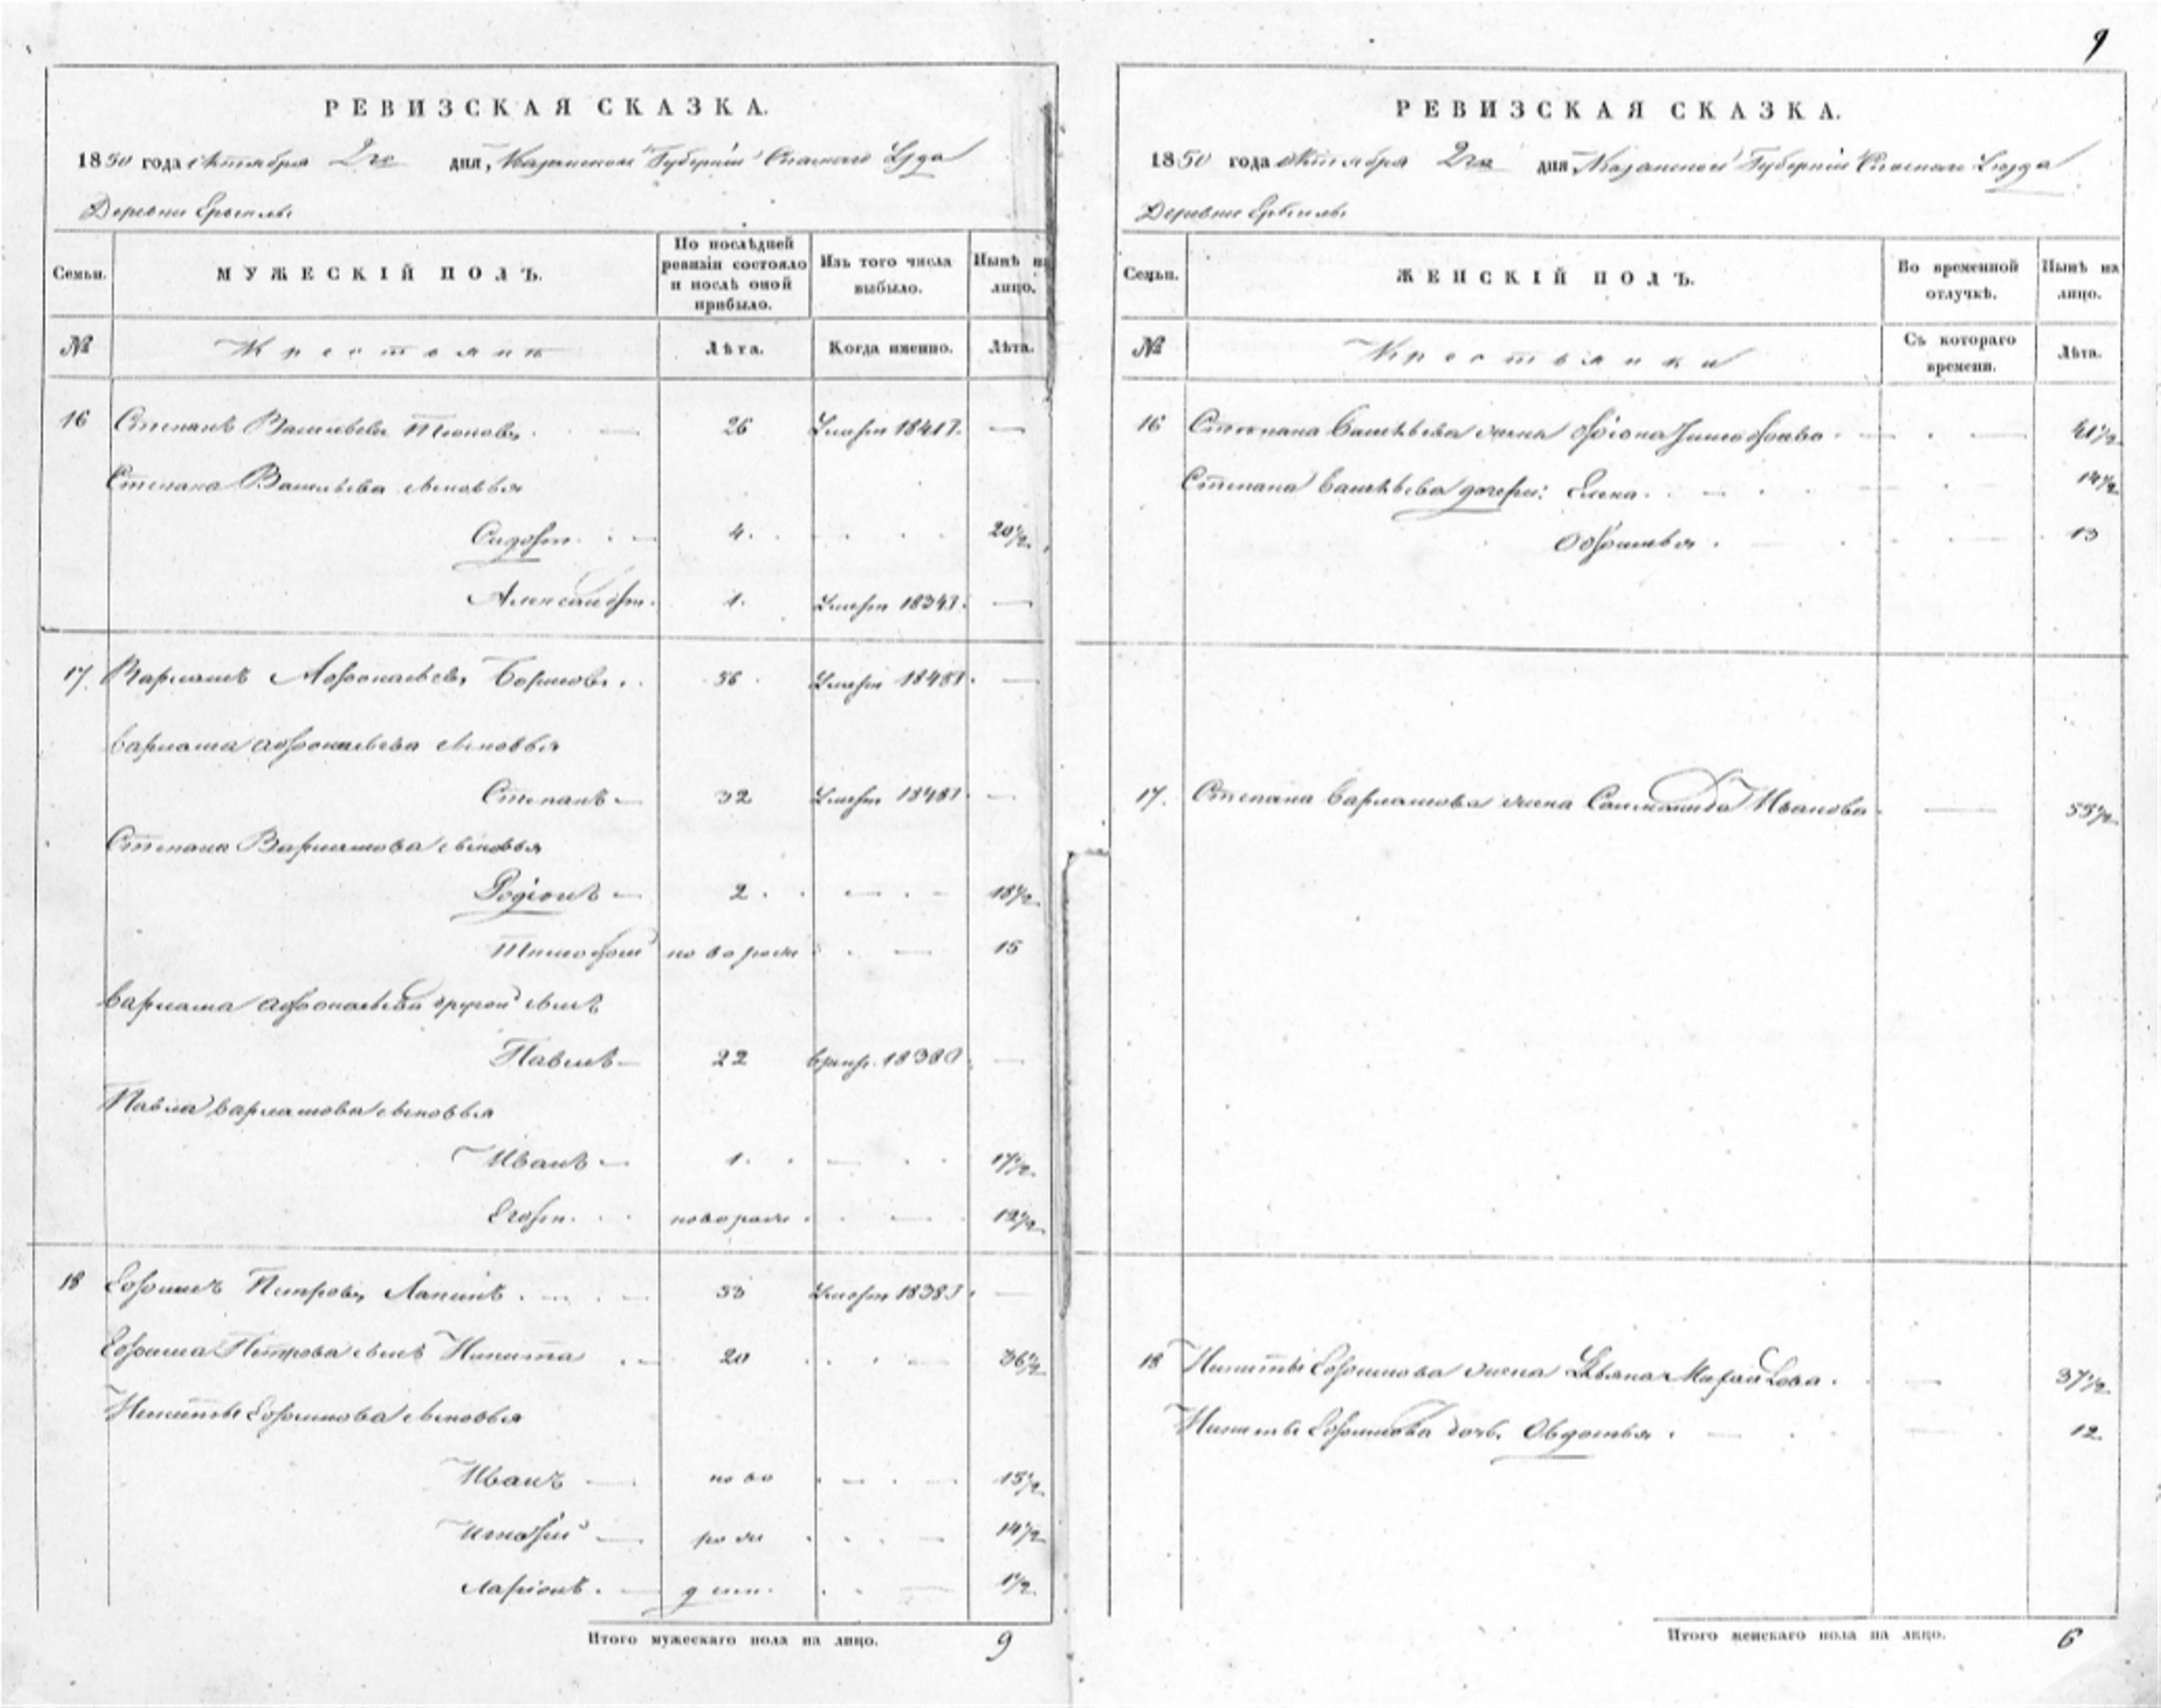 9
РЕВИЗСКАЯ СКАЗКА.
1850 года Октября 2го дня, Казанской Губернiи Спаского Уѣзда
Деревни
Семьи. МУЖЕСКІЙ ПОЛЪ. По послѣдней ревизіи состояло и послѣ оной прибыло. Изъ того числа выбыло. Нынѣ на лицо.
№ Крестьяне Лѣта. Когда именно. Лѣта.
16 Степанъ Васильевъ 26 Умеръ 1841г. —
Степана Васильева сыновья
Сидоръ 4. 20½
Александръ 1. Умеръ 1834г. —
17. Варламъ Афонасьевъ Борисовъ 56 Умеръ 1845г. —
Варлама Афонасьева сыновья
Степанъ — 32 Умеръ 1848г. —
Степана Варламова сыновья
Родіонъ — 2 18½
Тимофей новорожд 15
Варлама Афонасьева другой сынъ
Павелъ — 22 1838 —
Павла Варламова сыновья
Иванъ — 1. 17½
Егоръ новорожд 12½
18 Ефимъ Петровъ Лапинъ 53 Умеръ 1838г. —
Ефима Петрова сынъ Никита 20 36½
Никиты Ефимова сыновья
Иванъ — ново 15½
— рож 14½
Ларіонъ ден. 1½
Итого мужескаго пола на лицо. 9
РЕВИЗСКАЯ СКАЗКА.
1850 года Октября 2го дня Казанской Губернiи Спаского Уѣзда
Деревни
Семьи. ЖЕНСКІЙ ПОЛЪ. Во временной отлучкѣ. Нынѣ на лицо.
№ Крестьянки Съ котораго времени. Лѣта.
16 Степана Васильева жена Тимофеева 41½
Степана Васильева дочери: Елена 14½
13
17. Степана Варламова жена Иванова 55½
18 Никиты Ефимова жена 37½
Никиты Ефимова дочь Овдотья 12
Итого женскаго пола на лицо. 6